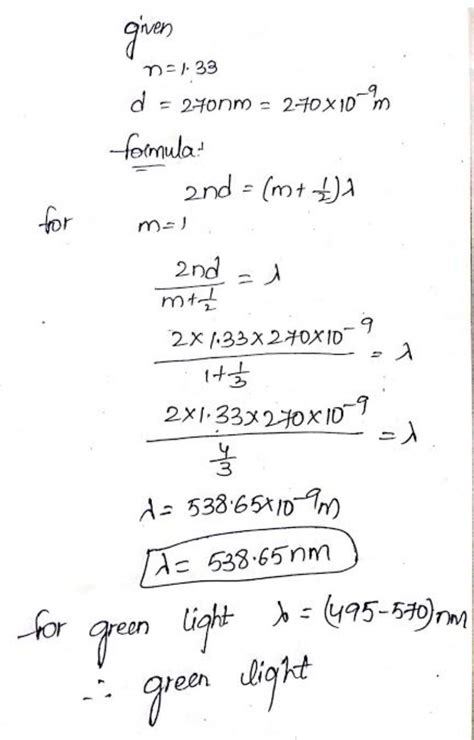 given
n=1.33
d = 270nm = 270×10⁻⁹m
formula:
2nd = (m+½)λ
for m=1
2nd/(m+½) = λ
(2×1.33×270×10⁻⁹)/(1+⅓) = λ
(2×1.33×270×10⁻⁹)/(4/3) = λ
λ= 538.65×10⁻⁹m
λ= 538.65nm
for green light λ = (495-570)nm
∴ green light